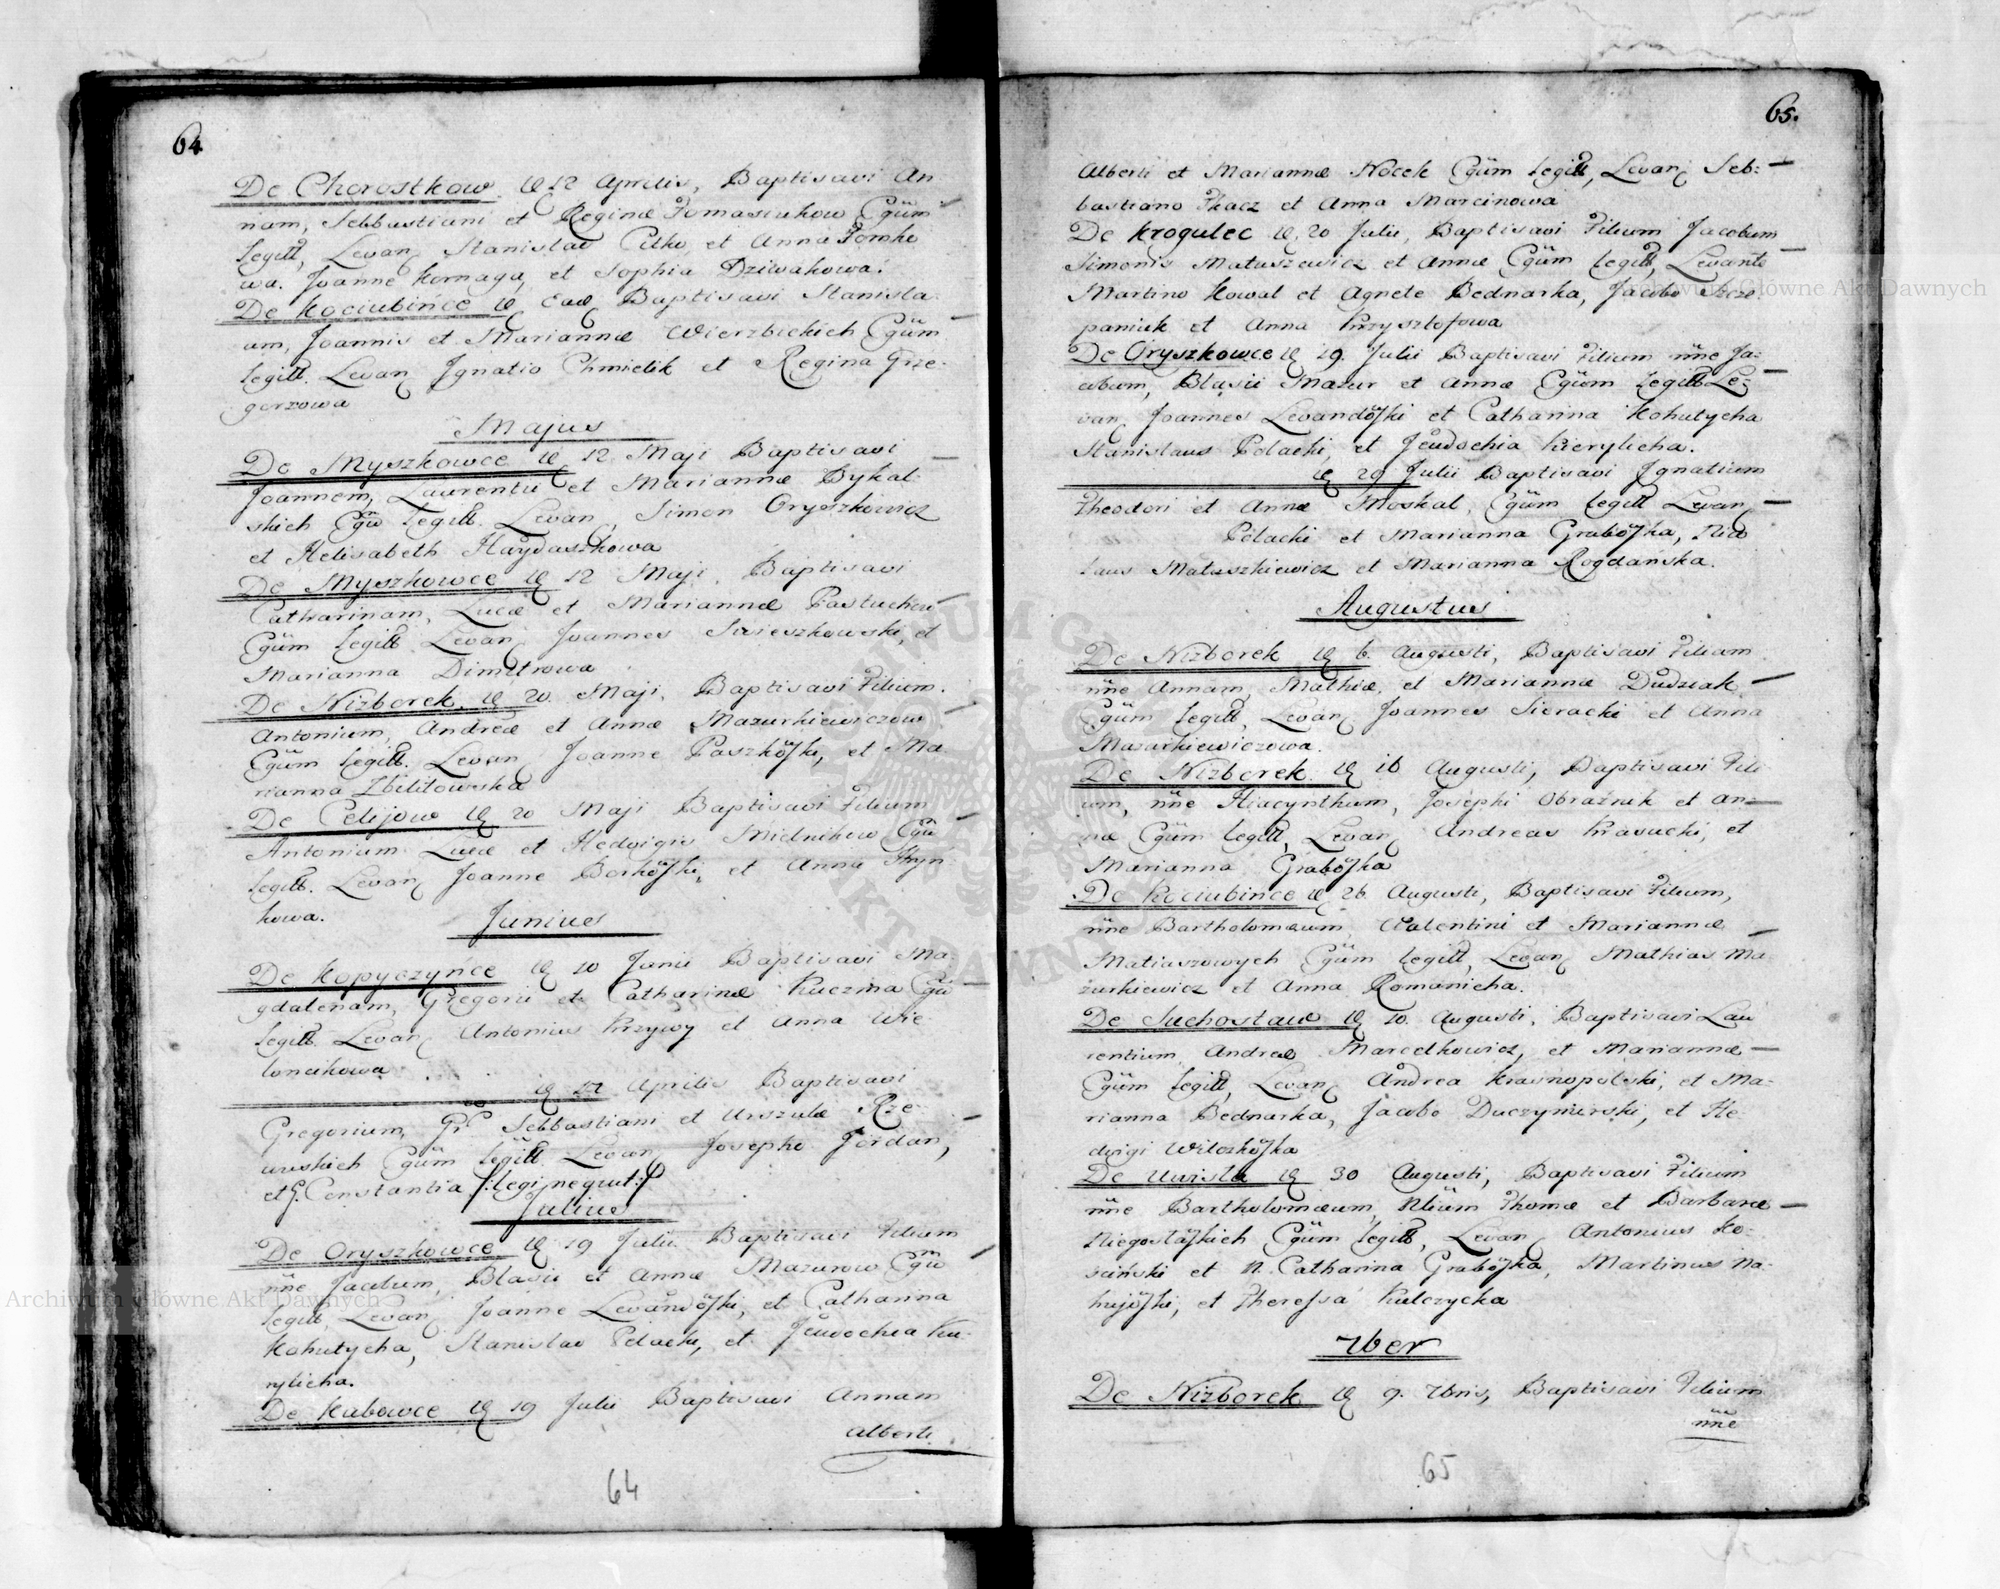 64
De Chorostkow d 12 Aprilis, Baptisavi An-
nam, Sebbastiani et Reginæ Tomasiukow Cgüm
legitt, Levan Stanislao Citko et Anna Tomko
wa. Joanne Kornaga, et Sophia Dziwakowa.
De Kociubińce d Ead Baptisavi Stanisla
um, Joannis et Mariannæ Wierzbickich Cgüm
legitt. Levan Ignatio Chmielik et Regina Grze-
gorzowa
Majus
De Myszkowce d 12 Maji Baptisavi
Joannem, Laurentii et Mariannæ Bykal-
skich Cgü legitt. Levan, Simon Oryszkowicz
et Helisabeth Haydaszkowa
De Myszkowce d 12 Maji, Baptisavi
Catharinam, Lucæ et Mariannæ Pastuchow
Cgüm legitt Levan Joannes Swieszkowski, et
Marianna Dimitrowa
De Nizborek d 20. Maji, Baptisavi Filium.
Antonium, Andreæ et Annæ Mazurkiewiczow
Cgüm legitt. Levan Joanne Paszkoski, et Ma
rianna Zbilitowska
De Celijow d 20 Maji Baptisavi Filium
Antonium Lucæ et Hedvigis Mielnikow Cgü
legitt. Levan Joanne Borkoski, et Anna Hryń
kowa.
Junius
De Kopyczyńce d 10 Junii Baptisavi Ma-
gdalenam, Gregorii et Catharinæ Kuczma Cgü
legitt. Levan Antonius Krzywy et Anna Wie
loncikowa
d 12 Aprilis Baptisavi
Gregorium, Gr. Sebbastiani et Urszulæ Rze
uuskich Cgüm legitt Levan Josepho Jordan,
et G. Constantia /:legi nequit:/
Julius
De Oryszkowce d 19 Julii Baptisavi Filium
nne Jacobum, Blasii et Annæ Mazurow Cgü
legitt, Levan Joanne Levandoski, et Catharina
Kohutycha, Stanislao Polacki, et Jeudochia Ku-
rylicha.
De Kabowce d 19 Julii Baptisavi Annam
Alberti
64
65.
Alberti et Mariannæ Nocek Cgüm legitt, Levan Seb:
bastiano Tkacz et Anna Marcinowa
De Krogulec d 20 Julii, Baptisavi Filium Jacobum
Simonis Matuszewicz et Annæ Cgüm legitt, Levante
Martino Kowal et Agnete Bednarka, Jacobo Szcze
paniuk et Anna Krzysztofowa
De Oryszkowce d 19. Julii Baptisavi Filium nne Ja:
cobum, Blasii Mazur et Annæ Cgüom legitt Le:
van Joannes Levandoski et Catharina Kohutycha
Stanislaus Polacki, et Jeudochia Kierylicha.
d 29 Julii Baptisavi Ignatium
Theodori et Annæ Moskal, Cgüm legitt Levan
Polacki et Marianna Graboska, Nico
laus Matuszkiewicz et Marianna Rogdańska.
Augustus
De Nizborek d 6. Augusti, Baptisavi Filiam
nne Annam, Mathiæ, et Mariannæ Dudziak
Cgüm legitt, Levan Joannes Sieracki et Anna
Mazurkiewiczowa.
De Nizborek d 16 Augusti, Baptisavi Fili
um, nne Hiacynthum, Josephi Obraźnik et An:
næ Cgüm legitt, Levan Andreas Krasucki, et
Marianna Graboska
De Kociubince d 26. Augusti, Baptisavi Filium,
nne Bartholomæum, Valentini et Mariannæ
Matiaszowych Cgüm legitt, Levan Mathias Ma
zurkiewicz et Anna Romanicha.
De Suchostaw d 10. Augusti, Baptisavi Lau
rentium Andreæ Marcelkowicz, et Mariannæ
Cgüm legitt, Levan Andrea Krasnopolski, et Ma-
rianna Bednarka, Jacobo Duczyminski, et He
dvigi Wilczkoska
De Uwisla d 30 Augusti, Baptisavi Filium
nne Bartholomæum, Thomæ et Barbaræ
Niegostaskich Cgüm legitt, Levan Antonius Ko-
sciński et N. Catharina Graboska, Martinus Na-
hujoski, et Theressa Kulczycka
7ber
De Nizborek d 9. 7bris, Baptisavi Filium
nne
65
Archiwum Główne Akt Dawnych
Archiwum Główne Akt Dawnych